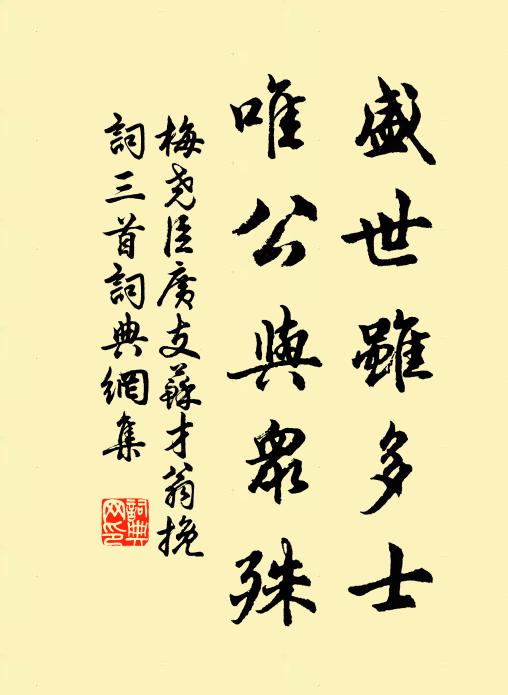 盛世雖多士
唯公與衆殊
梅堯臣廣支蘇才翁挽
詞三首詞典網集
詞典
网印